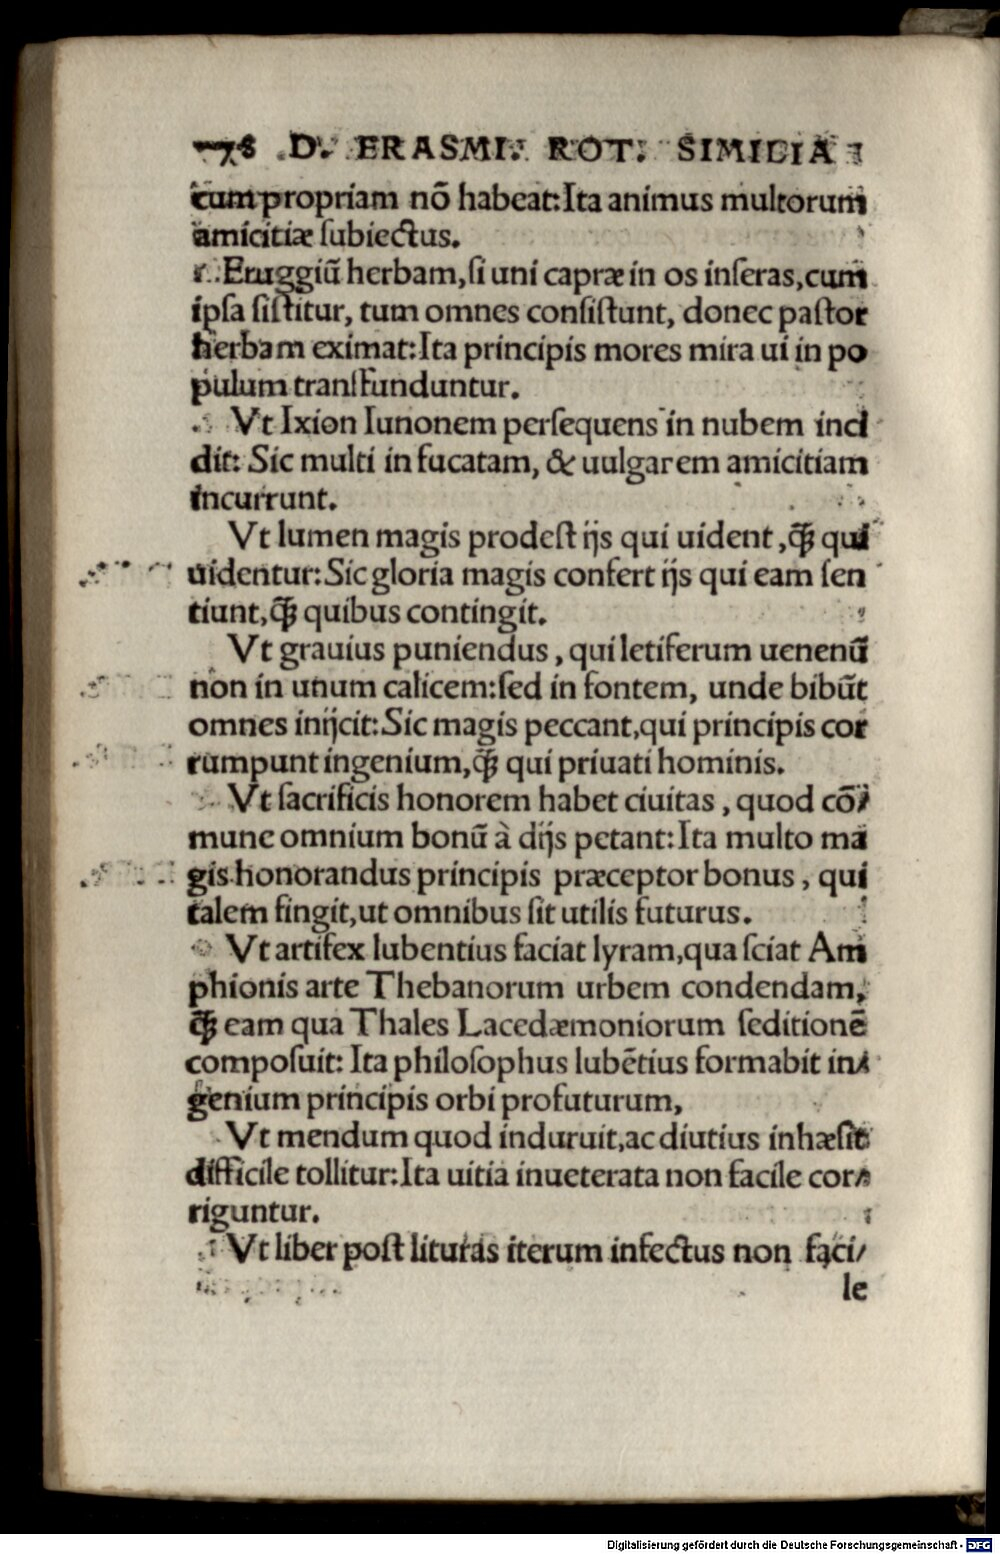 78 D. ERASMI. ROT. SIMILIA
cum propriam nõ habeat: Ita animus multorum
amicitiæ ſubiectus.
Eruggiũ herbam, ſi uni capræ in os inſeras, cum
ipſa ſiſtitur, tum omnes conſiſtunt, donec paſtor
herbam eximat: Ita principis mores mira ui in po
pulum transfunduntur.
Vt Ixion Iunonem perſequens in nubem inci
dit: Sic multi in fucatam, & uulgarem amicitiam
incurrunt.
Vt lumen magis prodeſt ijs qui uident, q̃ꝫ qui
uidentur: Sic gloria magis confert ijs qui eam ſen
tiunt, q̃ꝫ quibus contingit.
Vt grauius puniendus, qui letiferum uenenũ
non in unum calicem: ſed in fontem, unde bibũt
omnes inijcit: Sic magis peccant, qui principis cor
rumpunt ingenium, q̃ꝫ qui priuati hominis.
Vt ſacrificis honorem habet ciuitas, quod cõ/
mune omnium bonũ à dijs petant: Ita multo ma
gis honorandus principis præceptor bonus, qui
talem fingit, ut omnibus ſit utilis futurus.
Vt artifex lubentius faciat lyram, qua ſciat Am
phionis arte Thebanorum urbem condendam,
q̃ꝫ eam qua Thales Lacedæmoniorum ſeditionẽ
compoſuit: Ita philoſophus lubẽtius formabit in/
genium principis orbi profuturum,
Vt mendum quod induruit, ac diutius inhæſit
difficile tollitur: Ita uitia inueterata non facile cor/
riguntur.
Vt liber poſt lituras iterum infectus non faci/
le
Digitalisierung gefördert durch die Deutsche Forschungsgemeinschaft - DFG